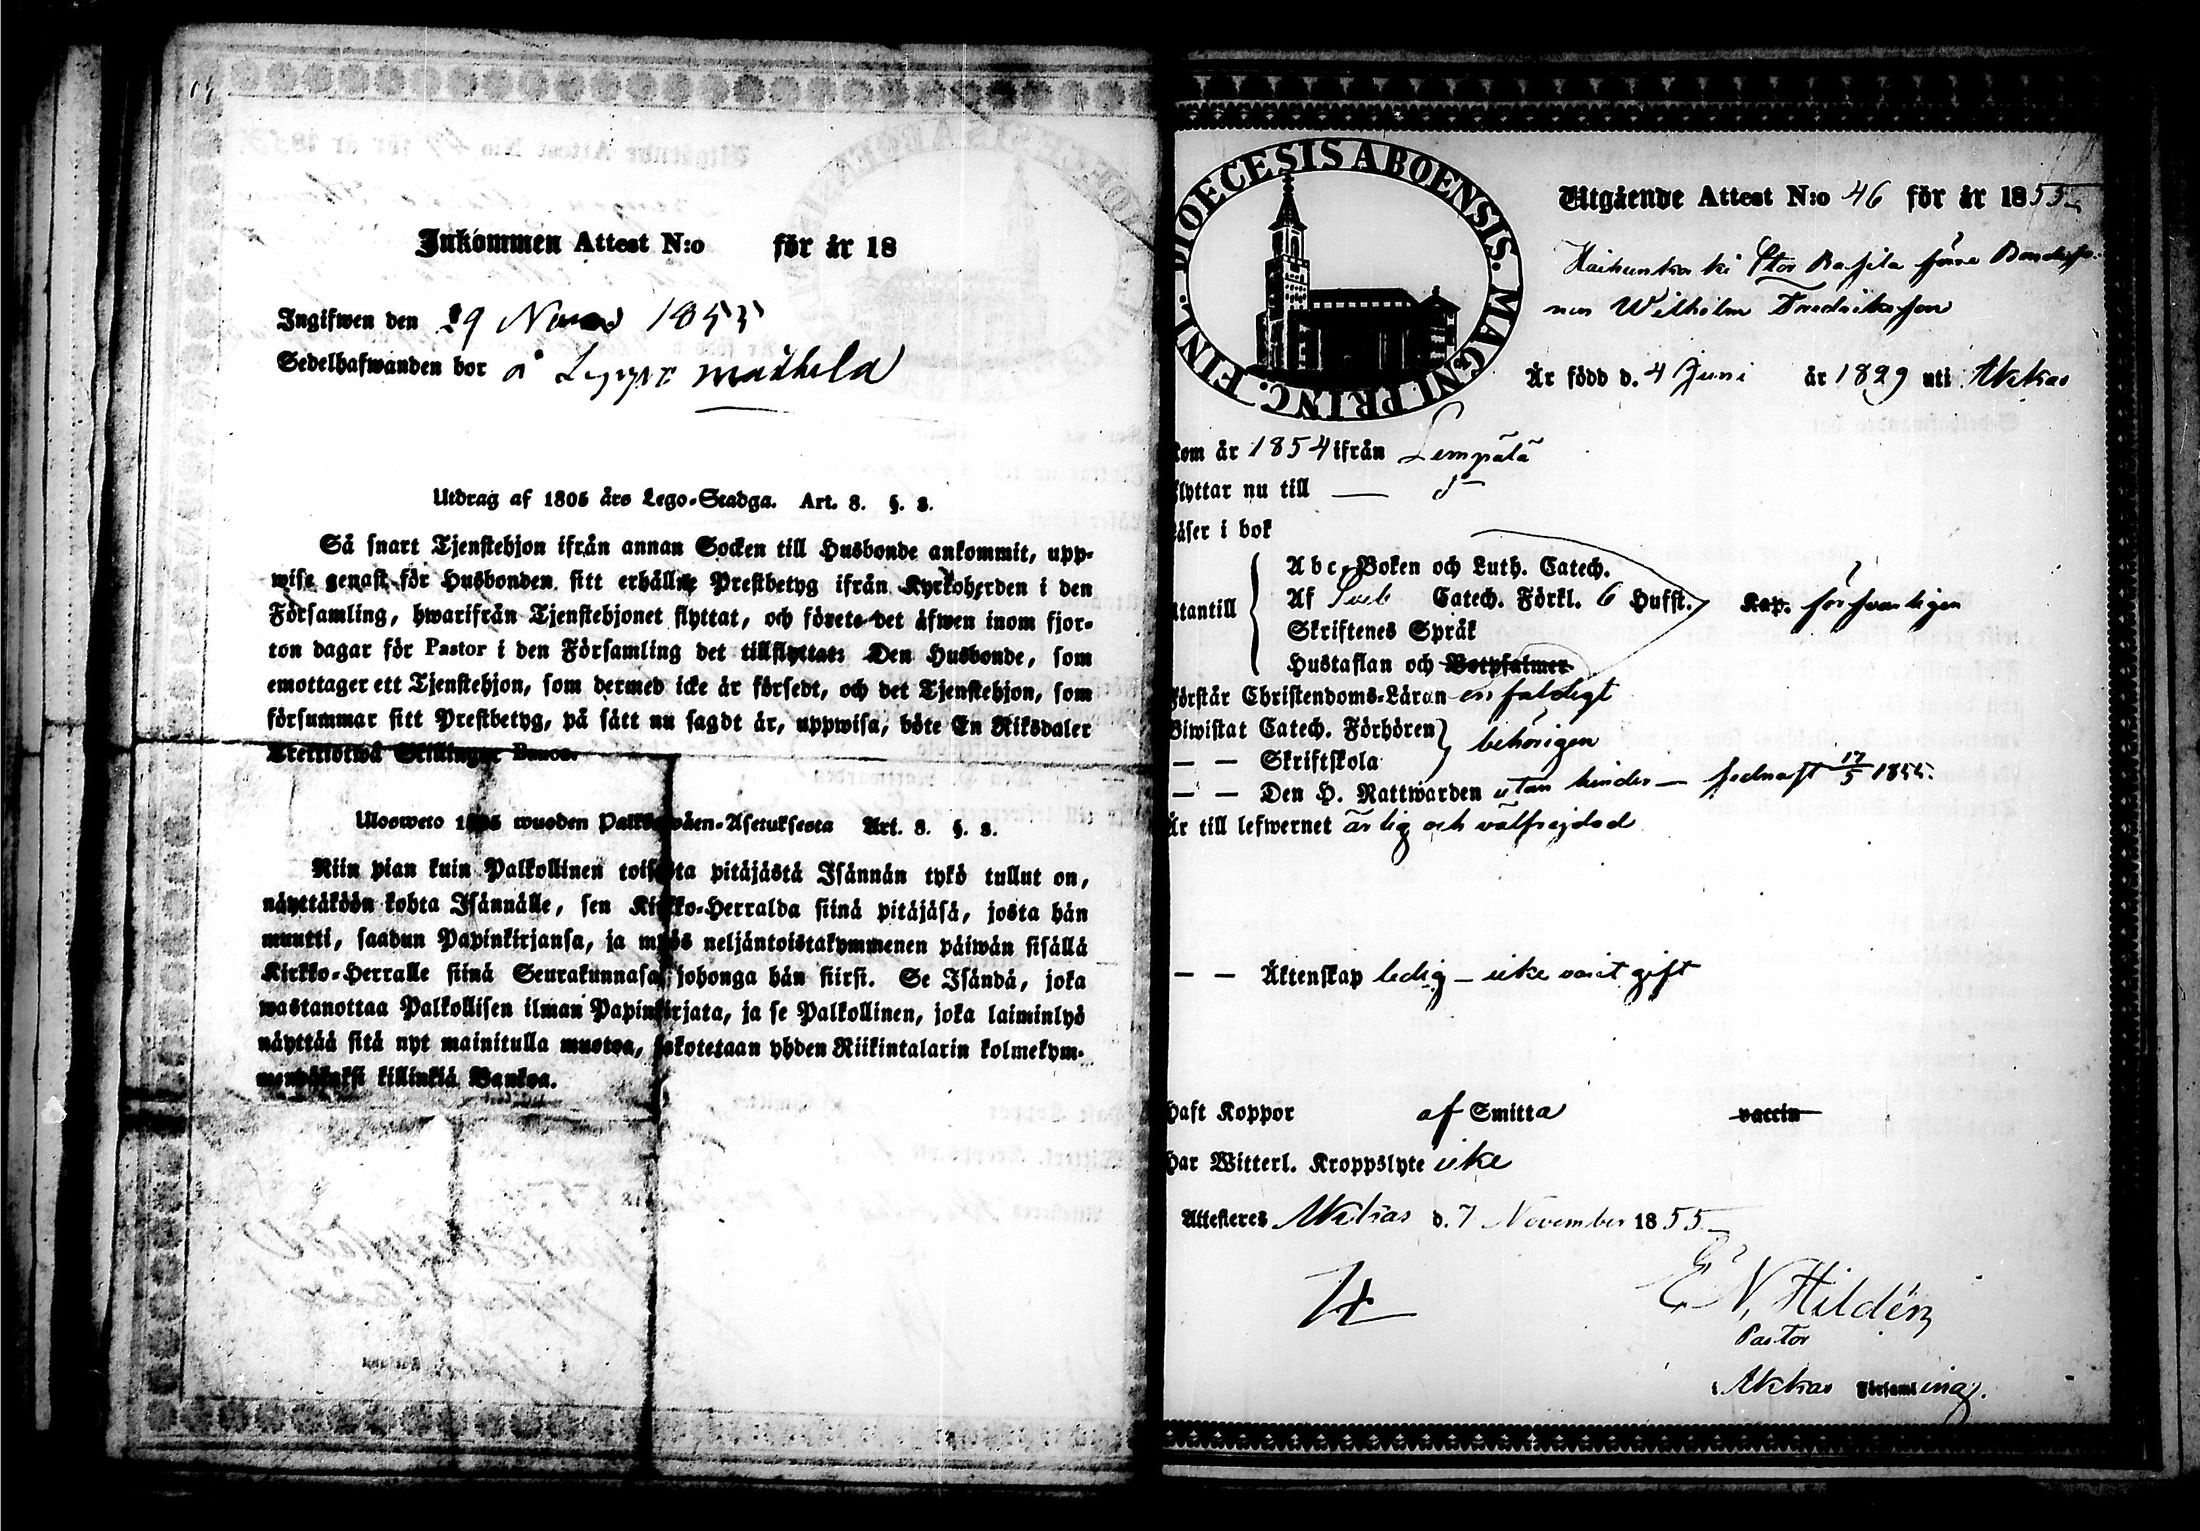 Inkommen Attest N:o för år 18
Ingifwen den 29 1855
Sedelhafwanden bor å
Utdrag af 1805 års Lego-Stadga. Art. 8. §. 2.
Så snart Tjenstehjon ifrån annan Socken till Husbonde ankommit, upp-
wise genast för Husbonden sitt erhållne Prestbetyg ifrån Kyrkoherden i den
Församling, hwarifrån Tjenstehjonet flyttat, och förete det äfwen inom fjor-
ton dagar för Pastor i den Församling det tillflyttat: Den Husbonde, som
emottager ett Tjenstehjon, som dermed icke är försedt, och det Tjenstehjon, som
försummar sitt Prestbetyg, på sätt nu sagdt är, uppwisa, böte En Riksdaler
Trettiotwå Skillingar Banco.
Ulosweto 1805 wuoden Palkkowäen-Asetuksesta Art. 8. §. 2.
Niin pian kuin Palkollinen toisesta pitäjästä Isännän tykö tullut on,
näyttäköön kohta Isännälle, sen Kirkko-Herralda siinä pitäjäsä, josta hän
muutti, saadun Papinkirjansa, ja myös neljäntoistakymmenen päiwän sisällä
Kirkko-Herralle siinä Seurakunnasa johonga hän siirsi. Se Isändä, joka
wastanottaa Palkollisen ilman Papinkirjata, ja se Palkollinen, joka laiminlyö
näyttää sitä nyt mainitulla muotoa, sakotetaan yhden Riikintalarin kolmekym-
menkaksi killinkiä Bankoa.
DIOECESIS ABOENSIS. MAGNI PRINC. FINL.
Utgående Attest N:o 46 för år 1855
Wilhelm Fredriksson
Är född d. 4 Juni år 1829 uti Akkas
Kom år 1854 ifrån Lempälä
Flyttar nu till — d—
Läser i bok
Abc-Boken och Luth. Catech.
Utantill Af Sveb Catech. Förkl. 6 Hufst. Kap. försvarligen
Skriftenes Språk
Hustaflan och Botpsalmer
Förstår Christendoms-Läran enfaldigt
Biwistat Catech. Förhören behörigen
— — Skriftskola
— — Den H. Nattwarden utan hinder — sednast 17/5 1855.
Är till lefwernet ärlig och välfrejdad
— — Äktenskap ledig — icke varit gift
Haft Koppor af Smitta vaccin
Har Witterl. Kroppslyte icke
Attesteres Akkas d. 7 November 1855
E N, Hildén
Pastor
i Akkas Församling.